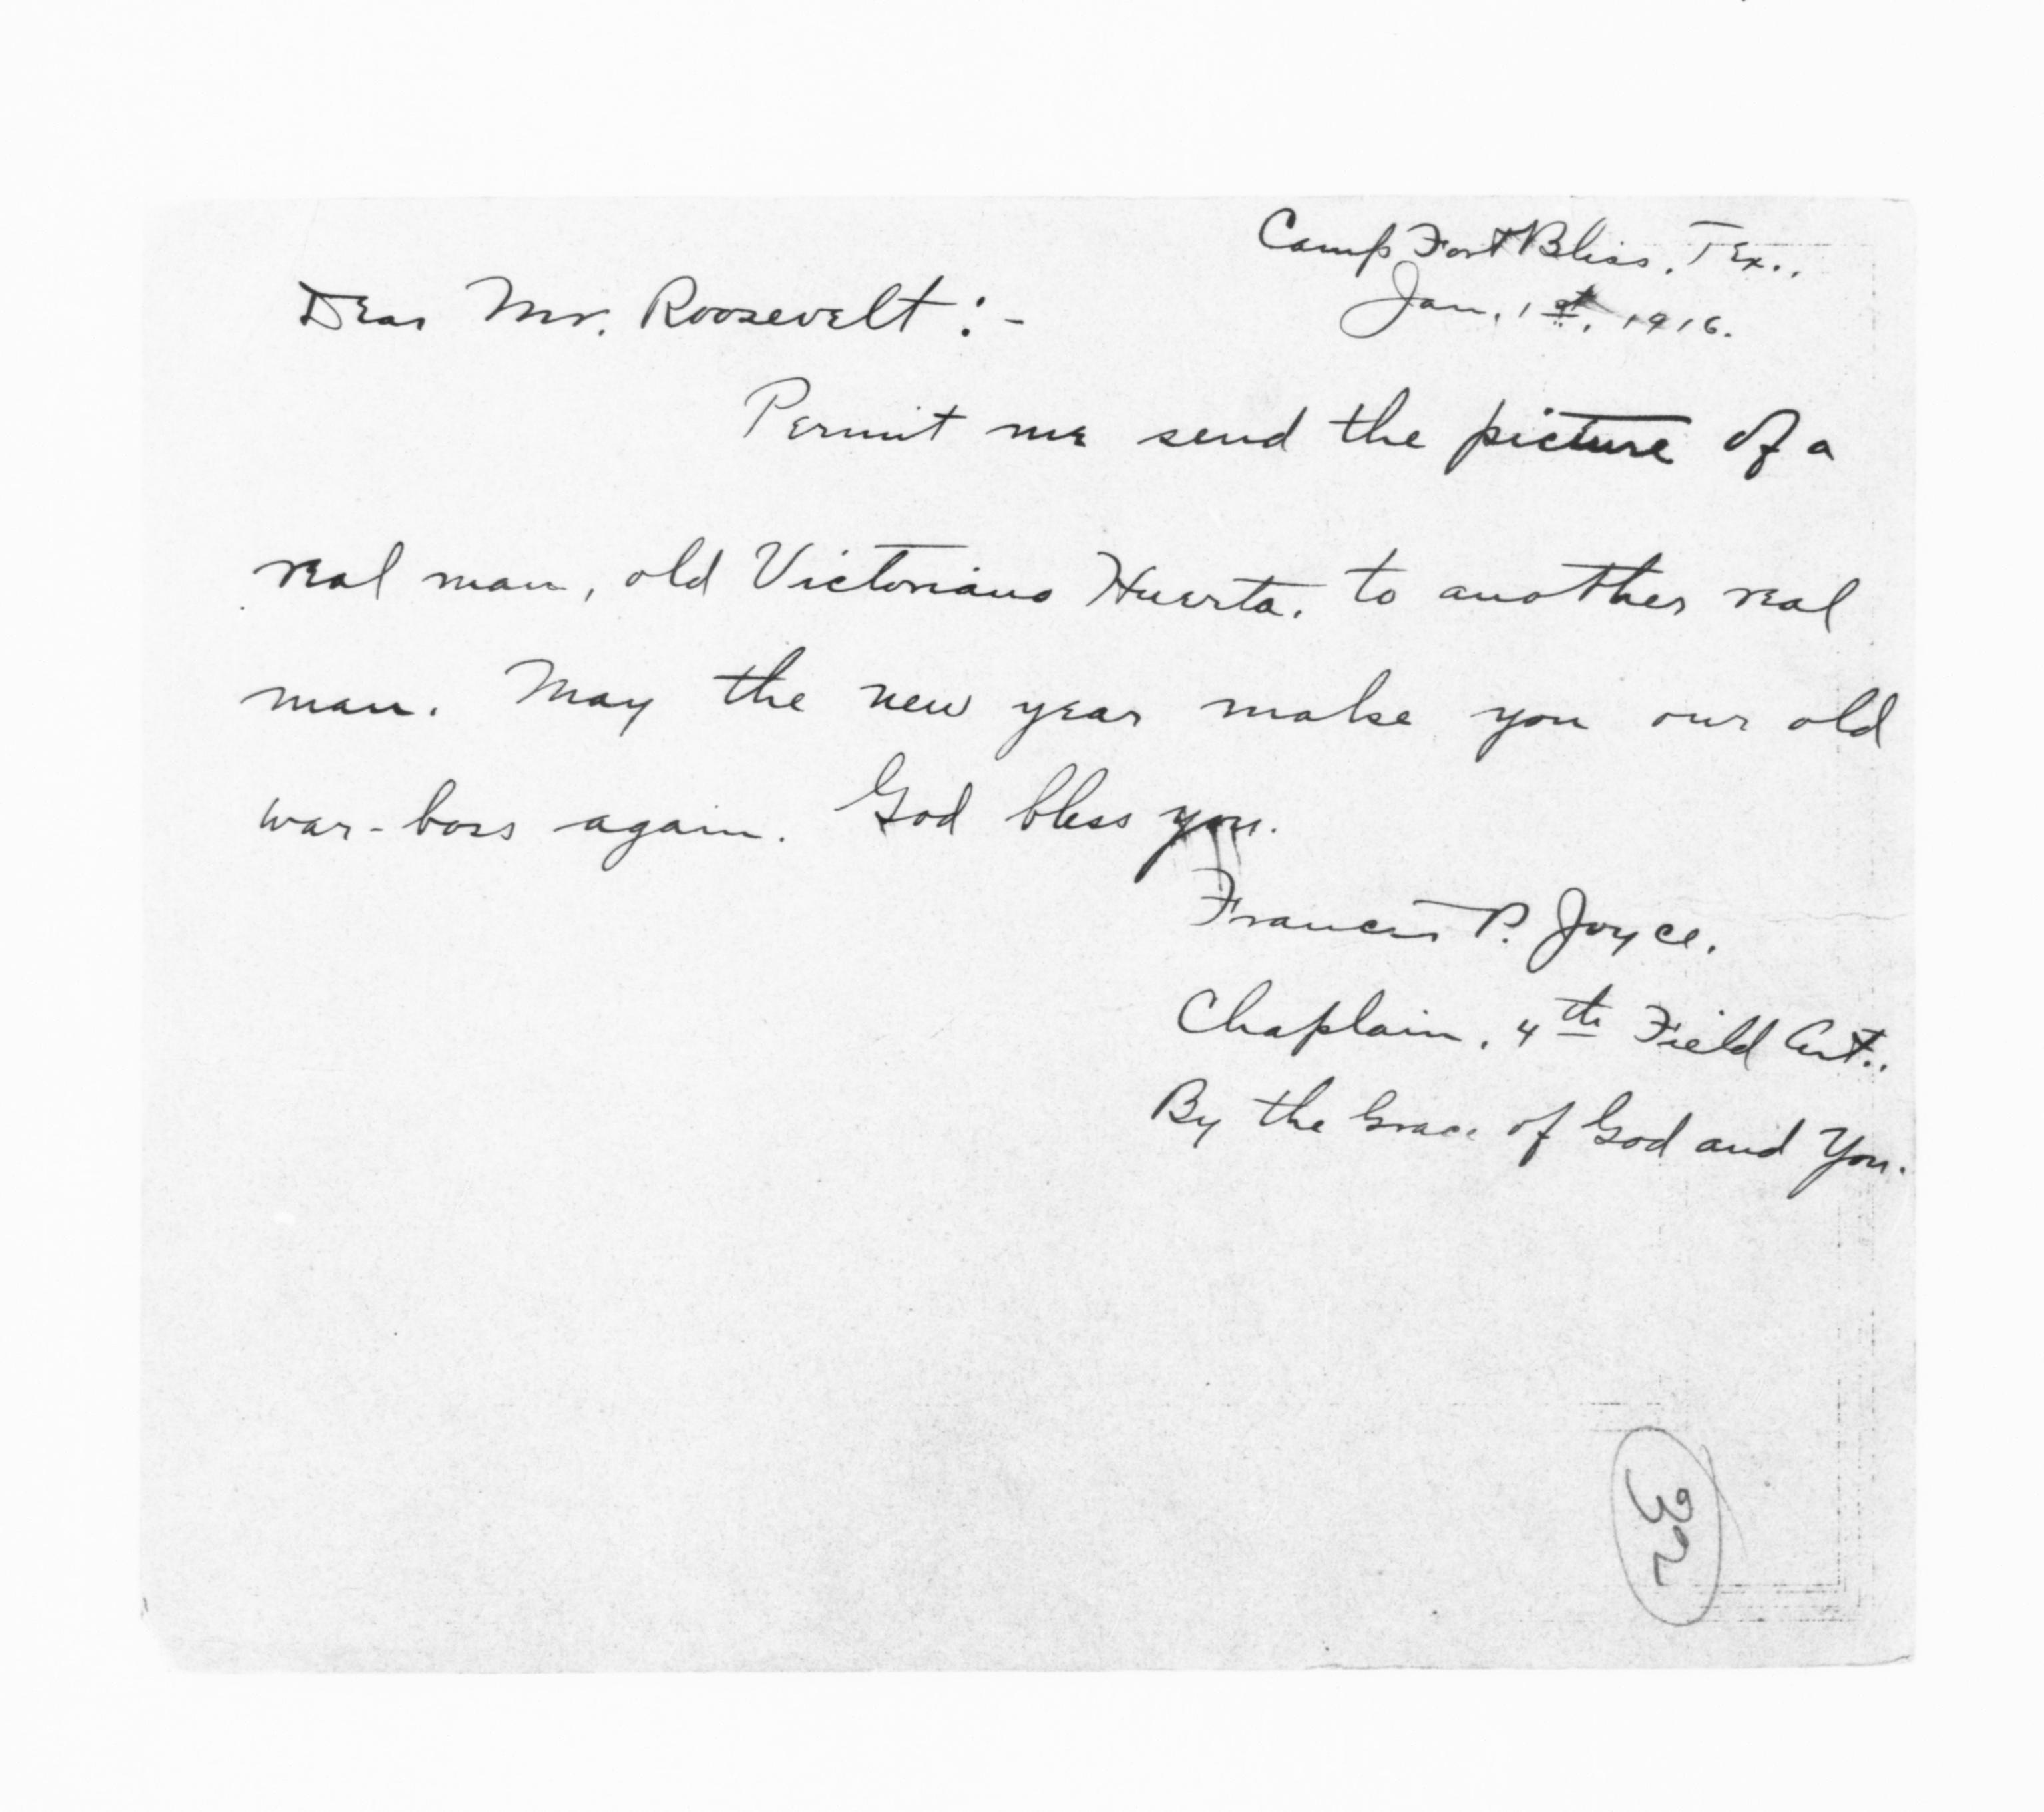 Camp Fort Bliss, Tex.,
Jan. 1st, 1916.
Dear Mr. Roosevelt:-
Permit me send the picture of a
real man, old Victoriano Huerta, to another real
man. May the new year make you our old
war-boss again. God bless you.
Francis P. Joyce.
Chaplain, 4th Field Art.,
By the Grace of God and You.
32